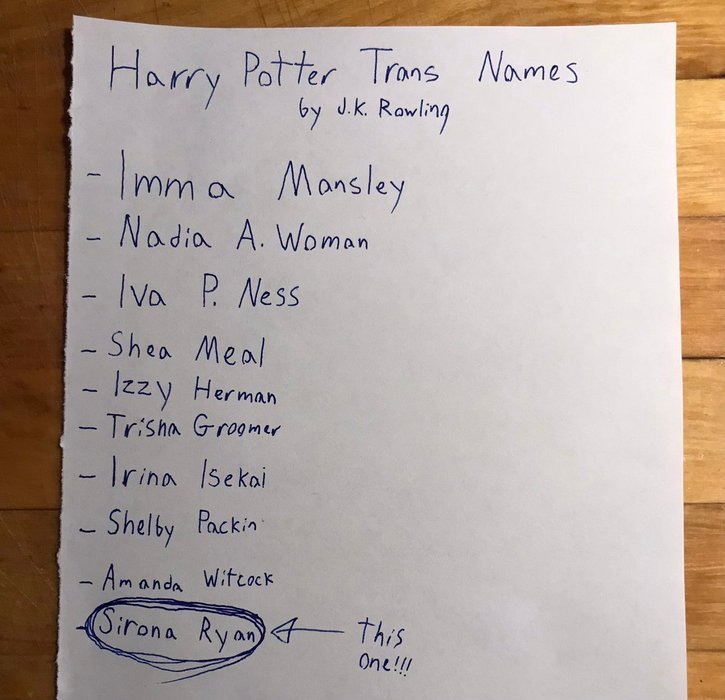 Harry Potter Trans Names
by J.K. Rowling
- Imma Mansley
- Nadia A. Woman
- Iva P. Ness
- Shea Meal
- Izzy Herman
- Trisha Groomer
- Irina Isekai
- Shelby Packin
- Amanda Witcock
- Sirona Ryan this
one!!!